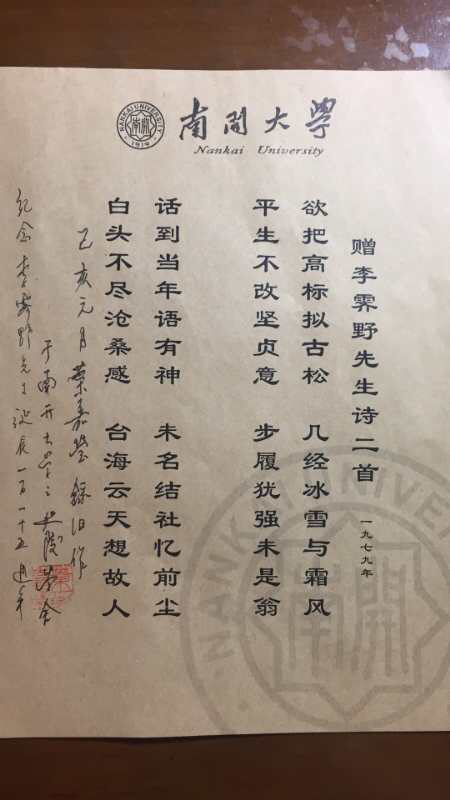 南開大學
Nankai University
NANKAI UNIVERSITY
南開
1919
赠李霁野先生诗二首 一九七九年
欲把高标拟古松 几经冰雪与霜风
平生不改坚贞意 步履犹强未是翁
话到当年语有神 未名结社忆前尘
白头不尽沧桑感 台海云天想故人
己亥元月葉嘉莹錄旧作
于南开大学之迦陵学舍
纪念李霁野先生诞辰一百一十五週年
NANKAI UNIVERSITY
南開